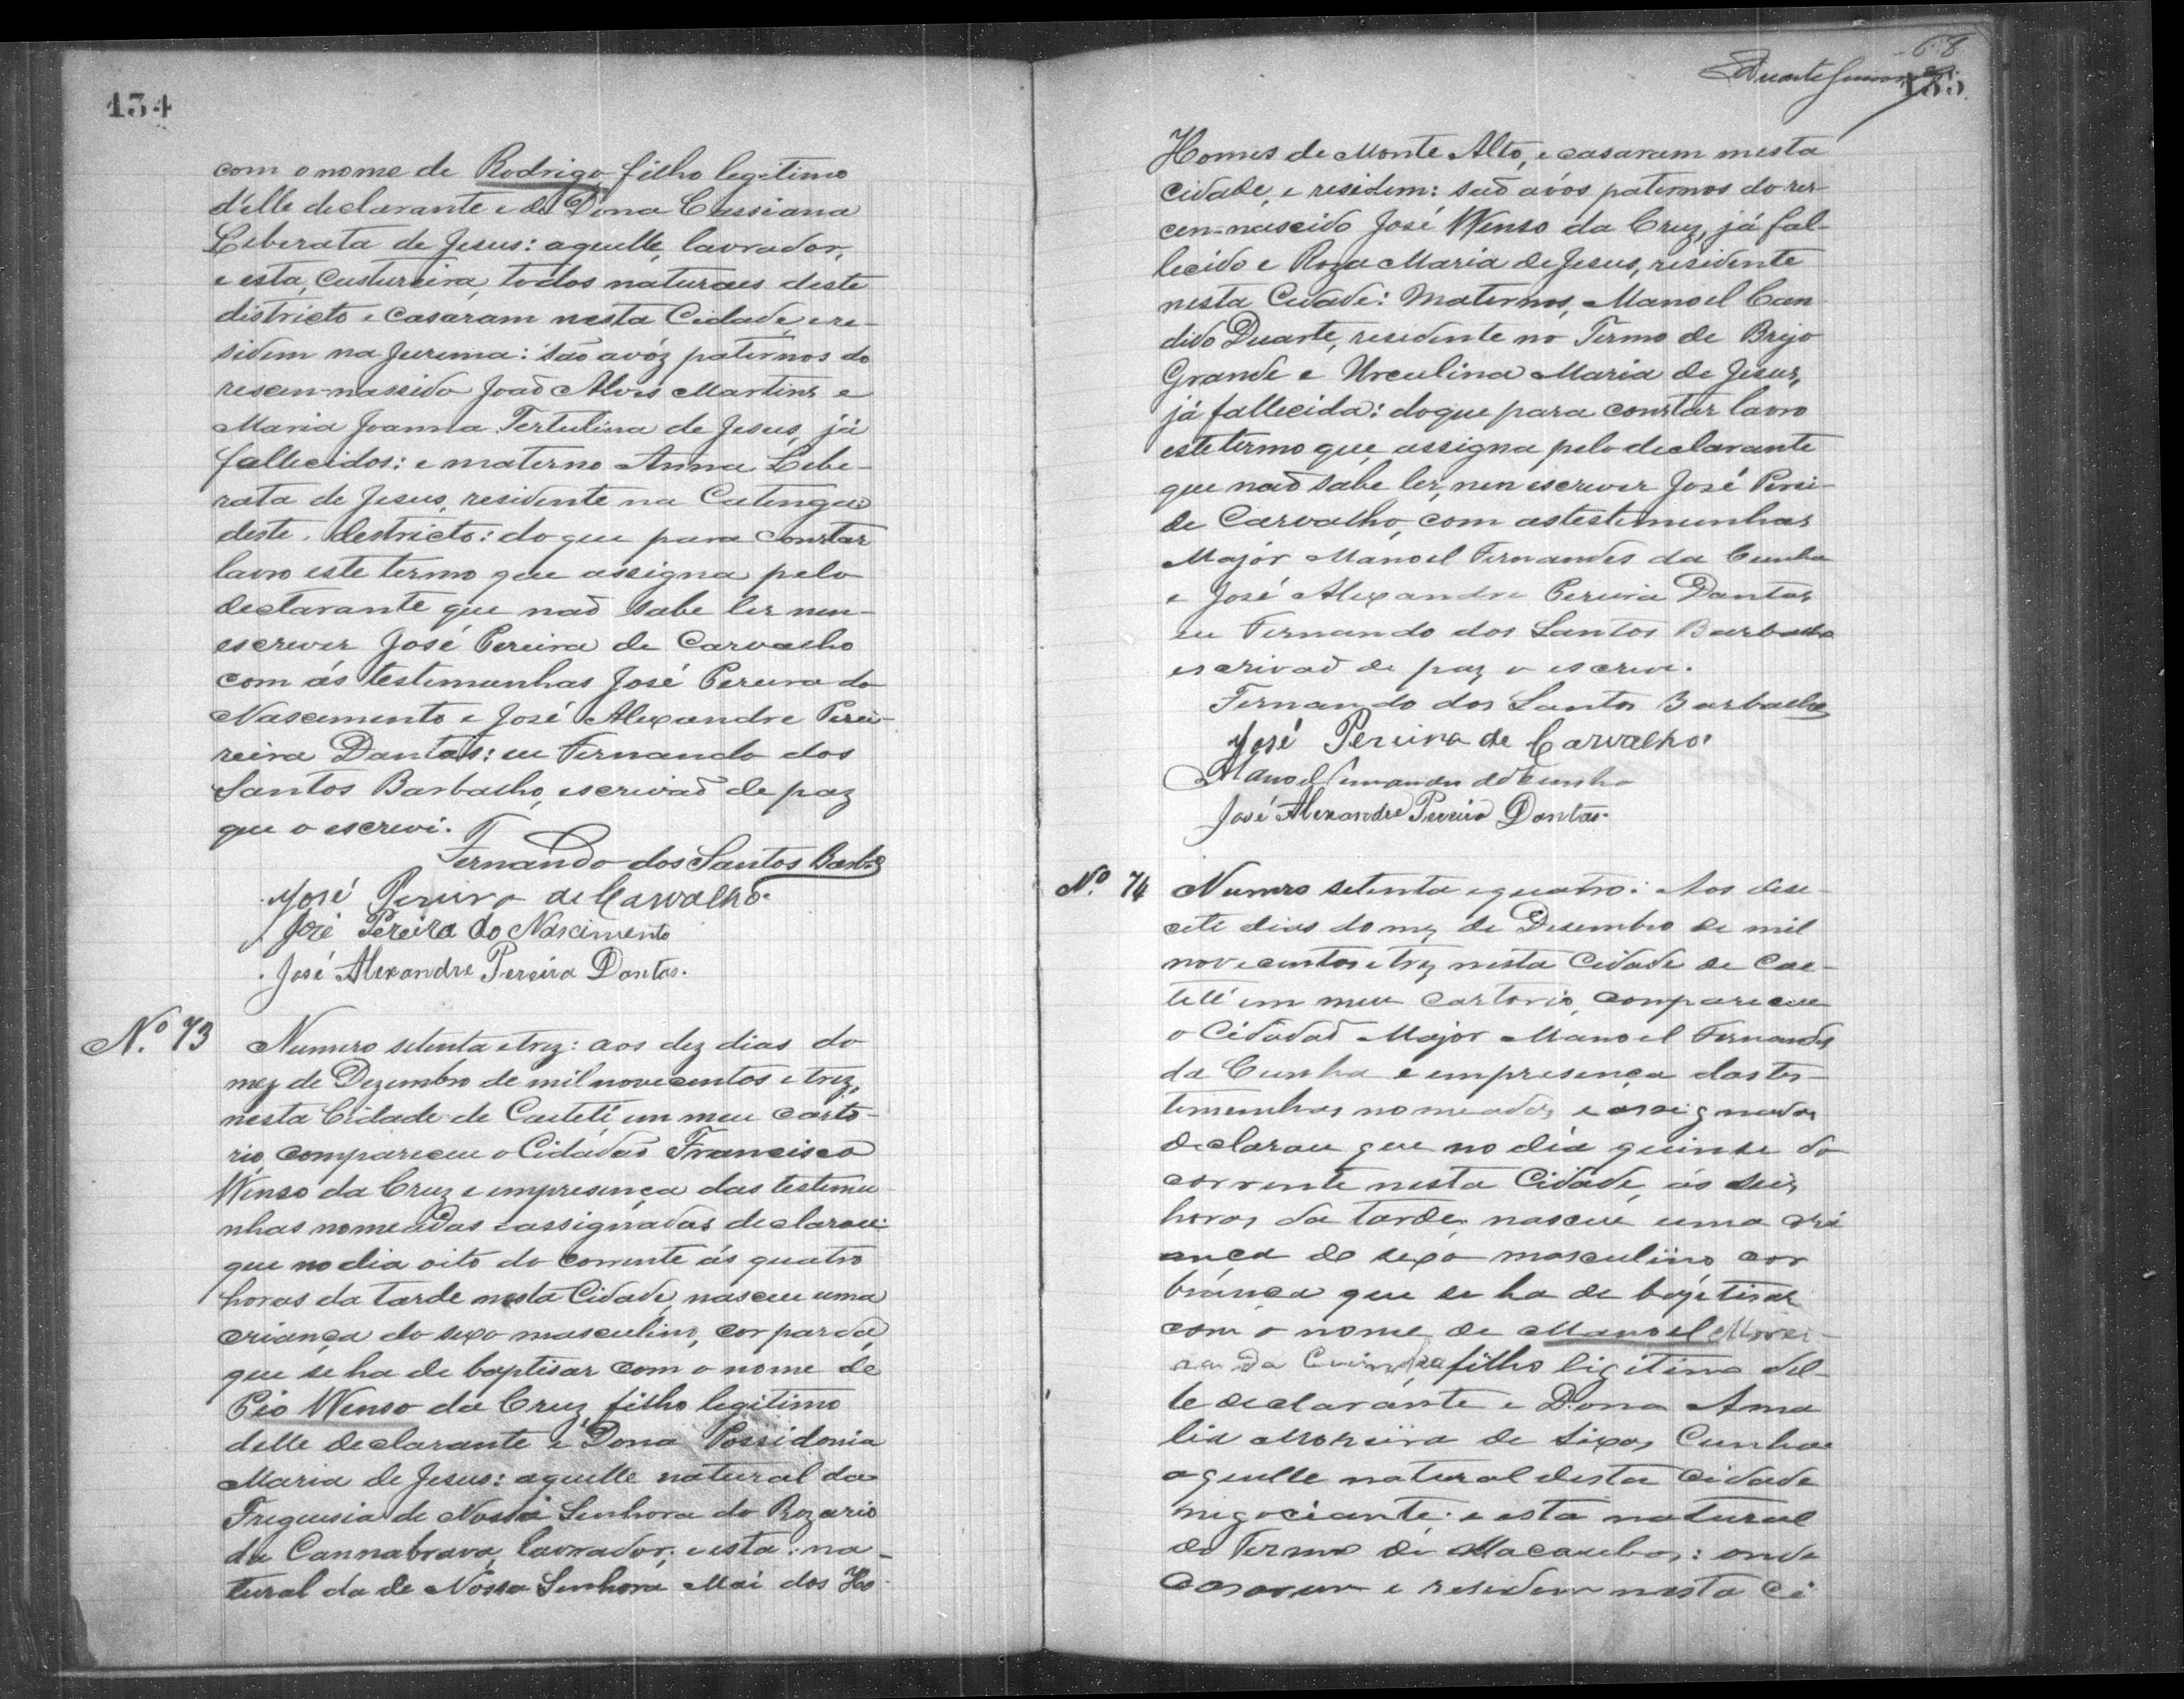 134
com o nome de Rodrigo filho legitimo
d'elle declarante e de Dona Cassiana
Liberata de Jesus: aquelle, lavrador,
e esta, custureira, todos naturaes deste
districto e casaram nesta Cidade, e re-
sidem na Jurema: são avóz paternos do
rescem-nassido João Alves Martins e
Maria Joanna Tertulina de Jesus, já
fallecidos: e materno Anna Libe-
rata de Jesus, residente na Catinga
deste. destricto: do que para constar
lavro este termo que assigna pelo
declarante que naõ sabe ler nem-
escrever José Pereira de Carvalho
com ás testemunhas José Pereira do
Nascimento e José Alexandre Perei-
reira Dantas: eu Fernando dos
Santos Barbalho, escrivaõ de paz
que o escrevi.
Fernando dos Santos Barbº
José Pereira de Carvalho.
José Pereira do Nascimento
José Alexandre Pereira Dantas.
Nº. 73 Numero setenta e trez: aos dez dias do
mez de Dezembro de mil novecentos e trez,
nesta Cidade de Caeteté, em meu carto-
rio, compareceu o Cidadaõ Francisco
Wenso da Cruz e empresença das testemu
nhas nomeadas e assignadas declarou:
que no dia oito do corrente ás quatro
horas da tarde nesta Cidade, nasceu uma
criança do sexo masculino, cor parda,
que se ha de baptisar com o nome de
Pio Wenso da Cruz, filho legitimo
delle declarante e Dona Possidonia
Maria de Jesus: aquelle natural da
Freguesia de Nossa Senhora do Rozario
da Cannabrava, lavrador; e esta: na-
tural da de Nossa Senhora Mai dos Ho-
68
135
Homes de Monte Alto, e casaram nesta
cidade, e residem: saõ avós paternos do re-
cen-nascido José Wenso da Cruz, já fal-
lecido e Roza Maria de Jesus, residente
nesta Cidade: Maternos, Manoel Can
dido Duarte, residente no Termo de Brejo
Grande e Urculina Maria de Jesus,
já fallecida: do que para constar lavro
este termo que assigna pelo declarante
que naõ sabe ler, nem escrever José Perei-
de Carvalho, com as testemunhas
Major Manoel Fernandes da Cunha
e José Alexandre Pereira Dantas
eu Fernando dos Santos Barbalho
escrivaõ de paz o escrevi.
Fernando dos Santos Barbalho
José Pereira de Carvalho.
Manoel Fernandes da Cunha
José Alexandre Pereira Dantas.
Nº. 74 Numero setenta e quatro: Aos dese-
cete dias do mez de Desembro de mil
novecentos e trez nesta Cidade de Cae-
teté em meu cartorio, compareceu
o Cidadaõ Major Manoel Fernandes
da Cunha e empresença das tes-
temunhas nomeadas e assignadas
declarou que no dia quinse do
corrente nesta Cidade, ás seis
horas da tarde, nasceu uma cri
ança do sexo masculino cor
branca que se ha de baptisar
com o nome de Manoel Morei-
ra da Cunha, filho ligitimo del-
le declarante e Dona Ama
lia Moreira de Cunha
aquelle natural desta cidade
negociante; e esta natural
do Termo de Macaubas: onde
casaram e residem nesta Ci